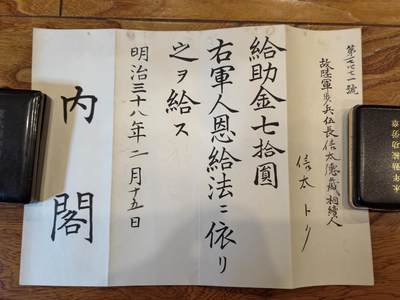 故陸軍歩兵伍長信太德蔵相續人
信太トリ
給助金七拾圓
右軍人恩給法ニ依リ
之ヲ給ス
明治三十八年二月十五日
内閣
永年勤続功労章